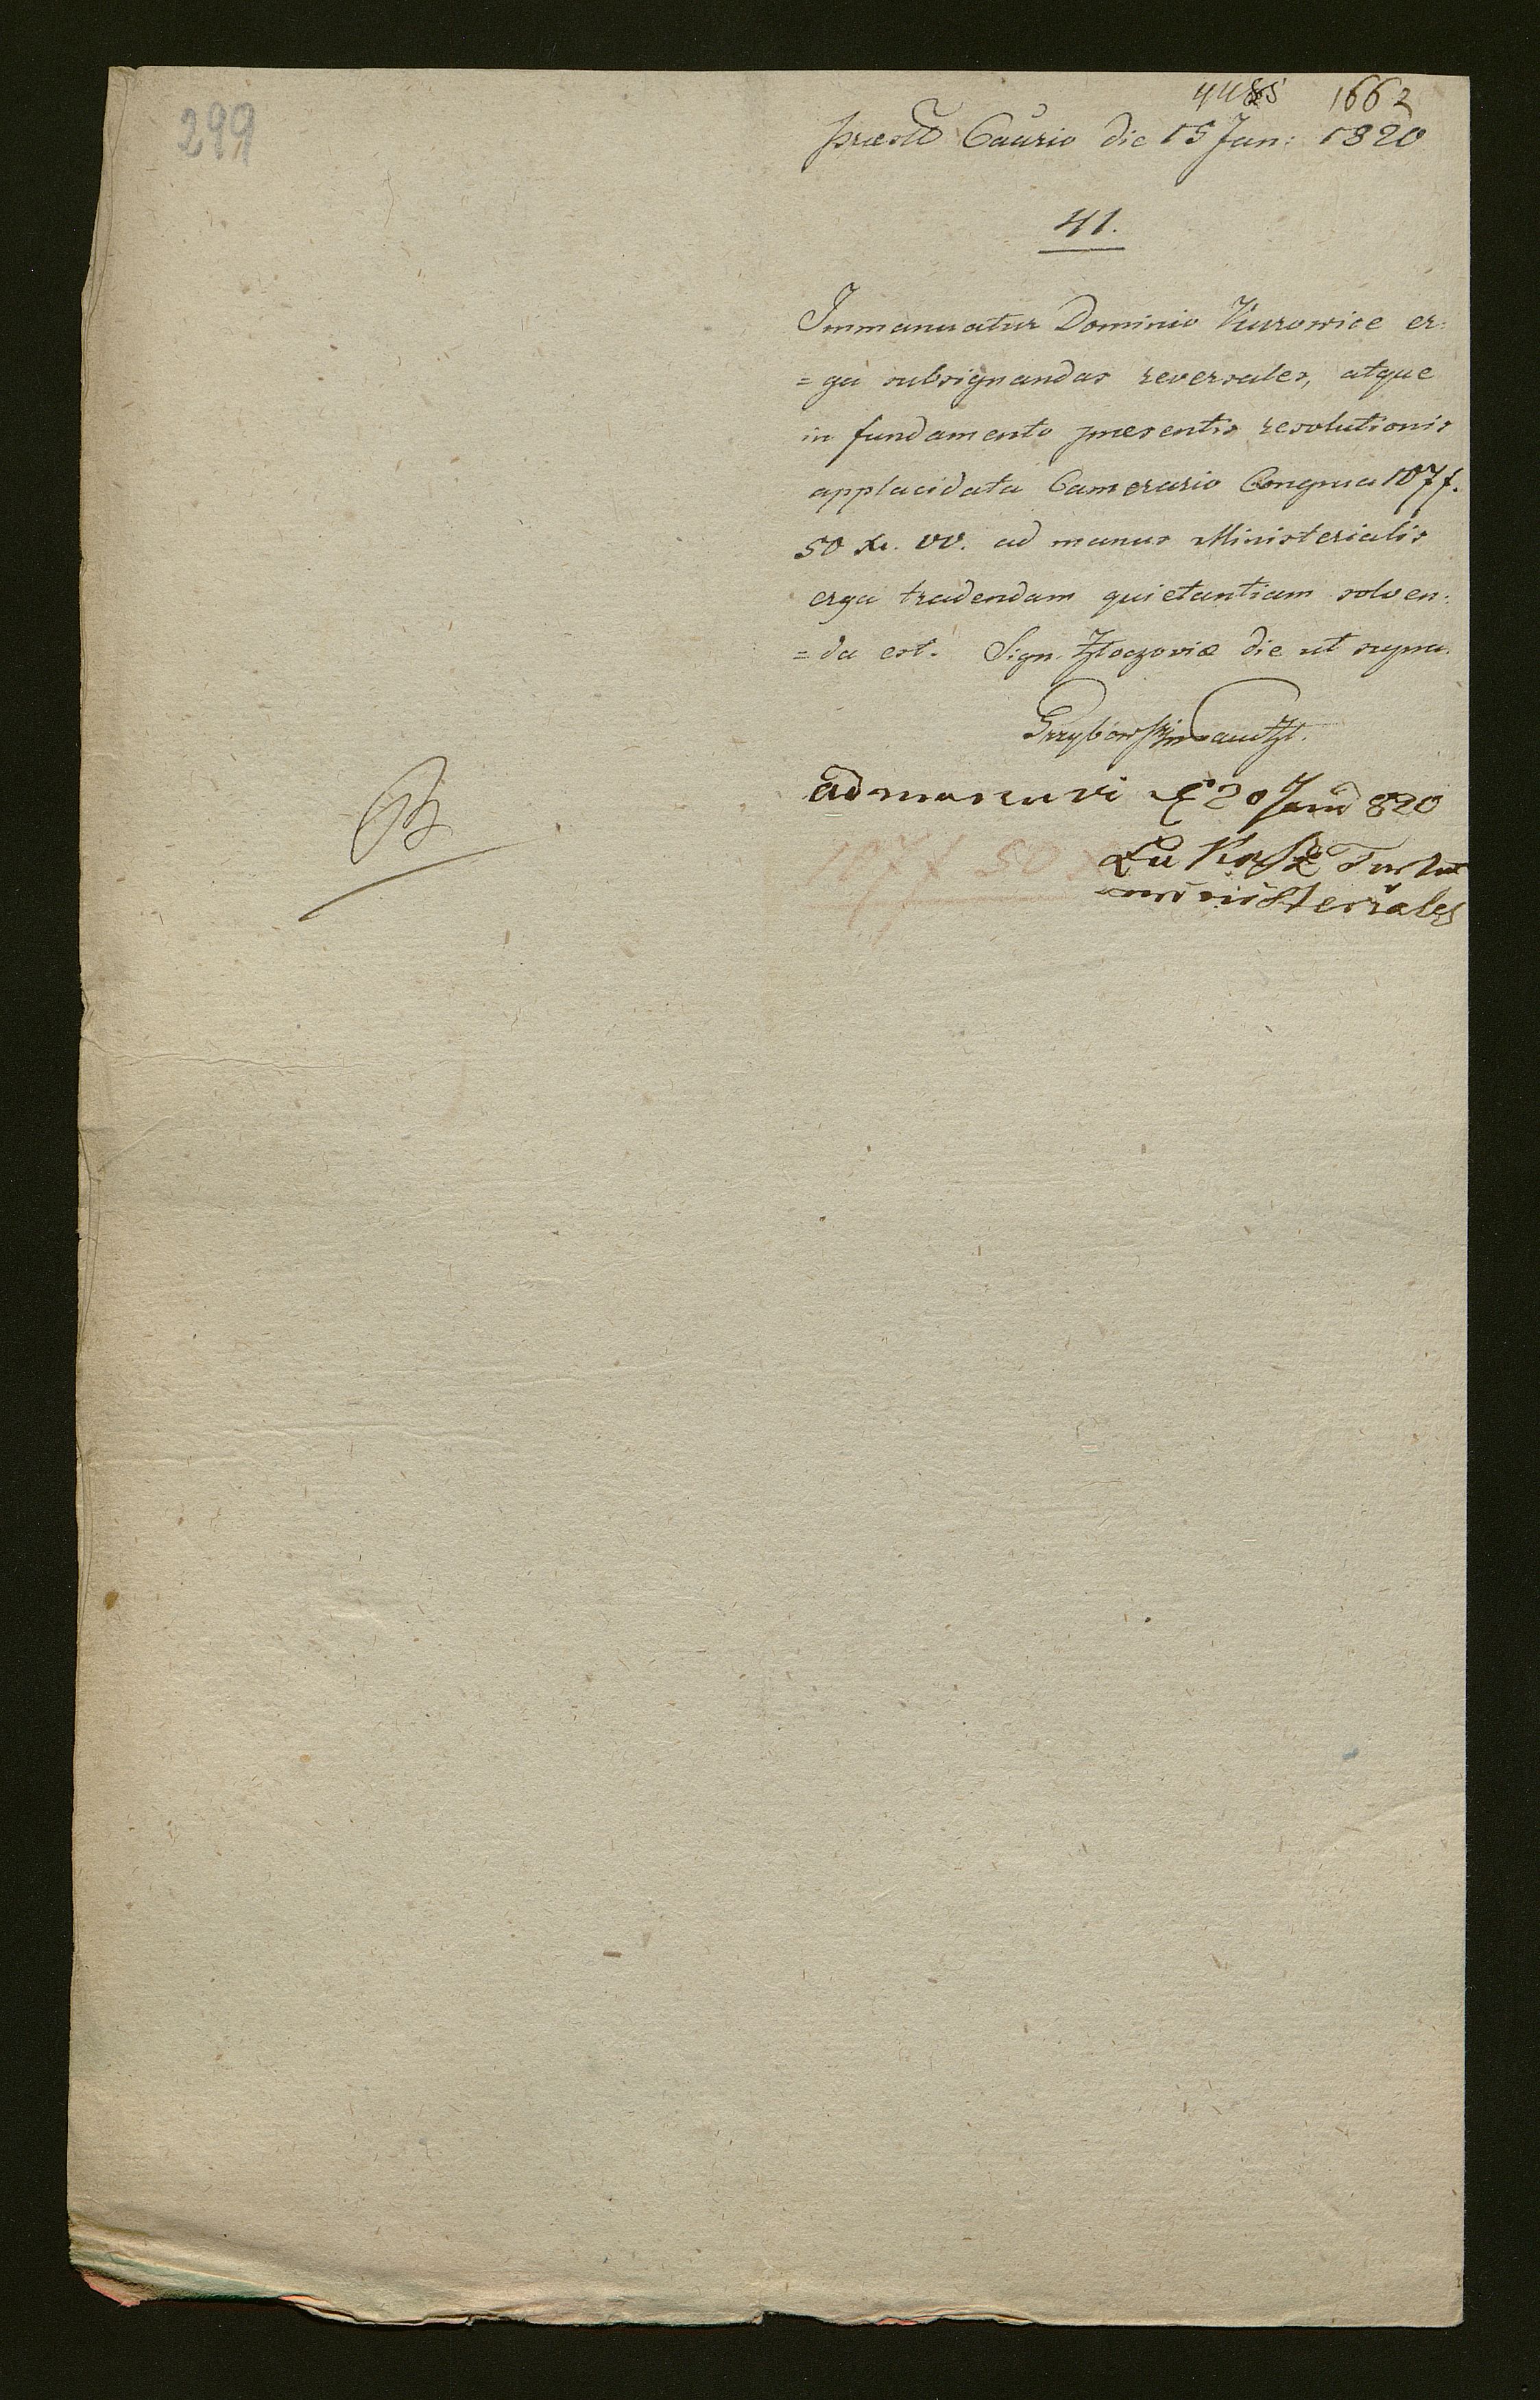 299
4485 1662
præsttt Caurio die 15 Jan: 1820
41.
Immanuatur Dominio Kurowice er:
=ga subsignandas reversales, atque
in fundamento præsentis resolutionis
applacidata Camerario Congrua 107 f.
50 xr. VV. ad manus Ministerialis
erga tradendam quietantiam solven:
=da est. Sign. Złoczoviæ die ut supra.
Grzybowski
ad manuvi 20 Janu 820
107 f 50
ministerrales